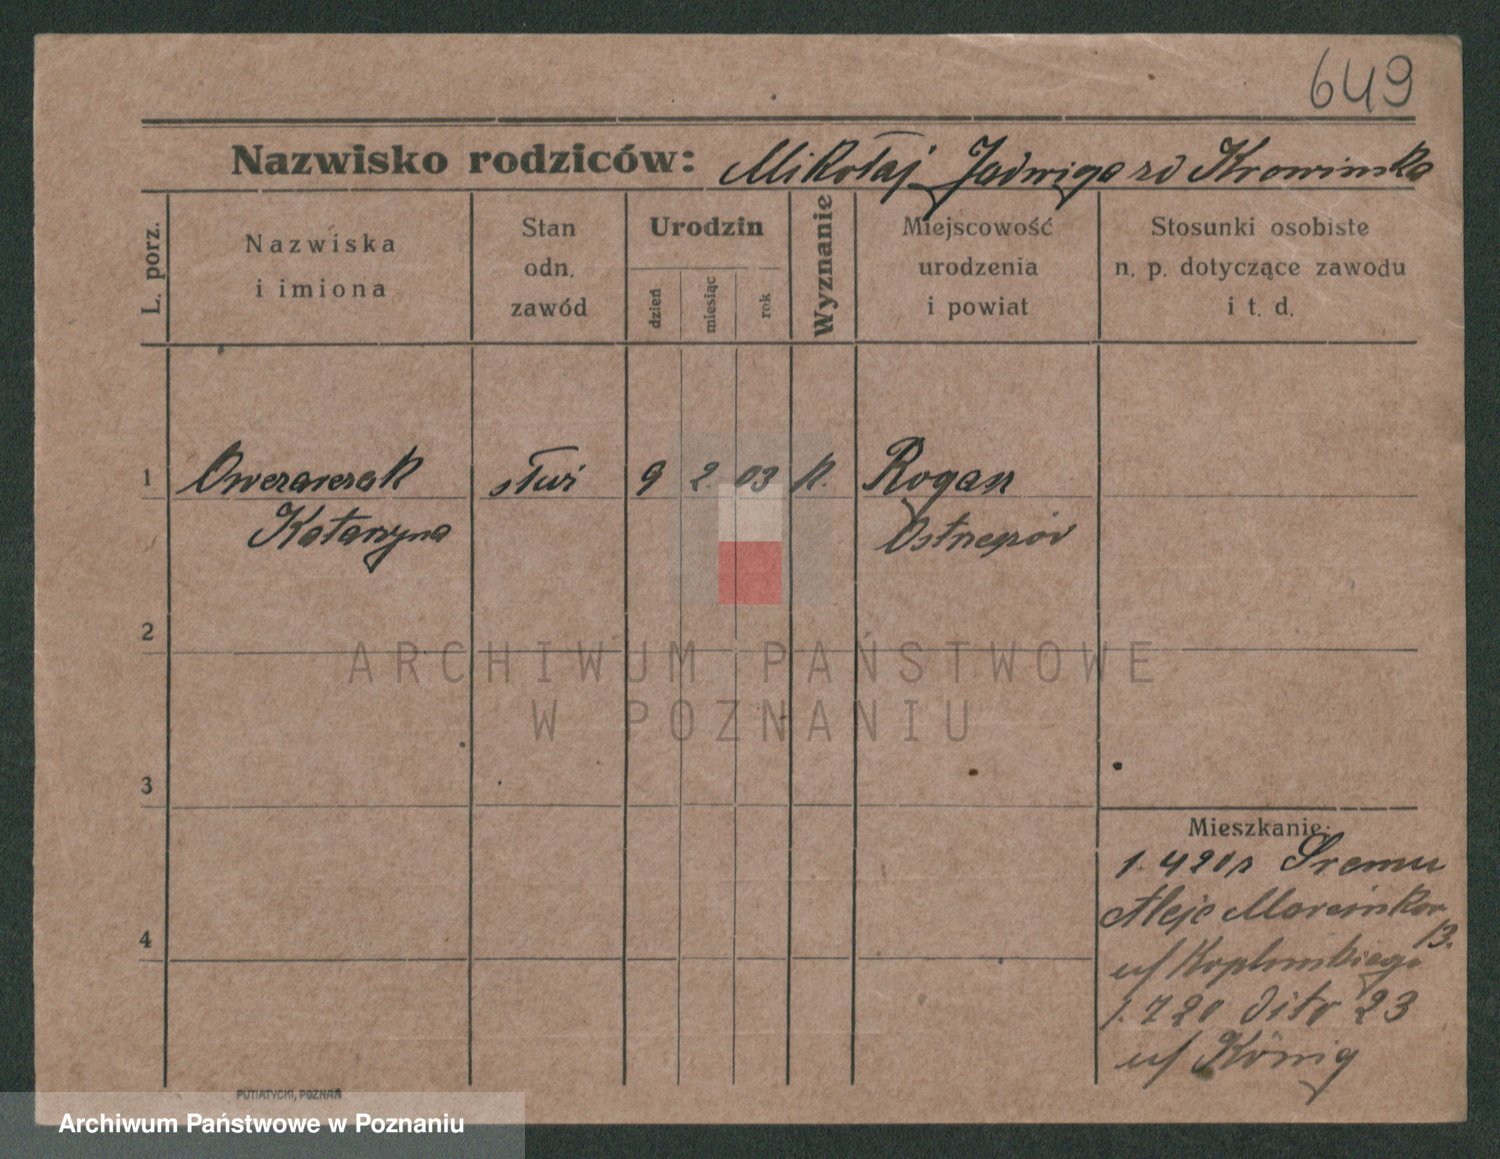 649
Nazwisko rodziców: Mikołaj Jadwiga zd Krowinska
L. porz.
Nazwiska
i imiona
Stan
odn.
zawód
Urodzin
dzień
miesiąc
rok
Wyznanie
Miejscowość
urodzenia
i powiat
Stosunki osobiste
n. p. dotyczące zawodu
i t. d.
1 Owczarczak służ 9 2 03 k. Rogasz
Katarzyna
2
ARCHIWUM PAŃSTWOWE
W POZNANIU
3
Mieszkanie:
1.4 20 z Sremu
Aleje Marcinkow
13.
4
1.7 20 dito 23
u/ König
PUTIATYCKI, POZNAŃ
Archiwum Państwowe w Poznaniu